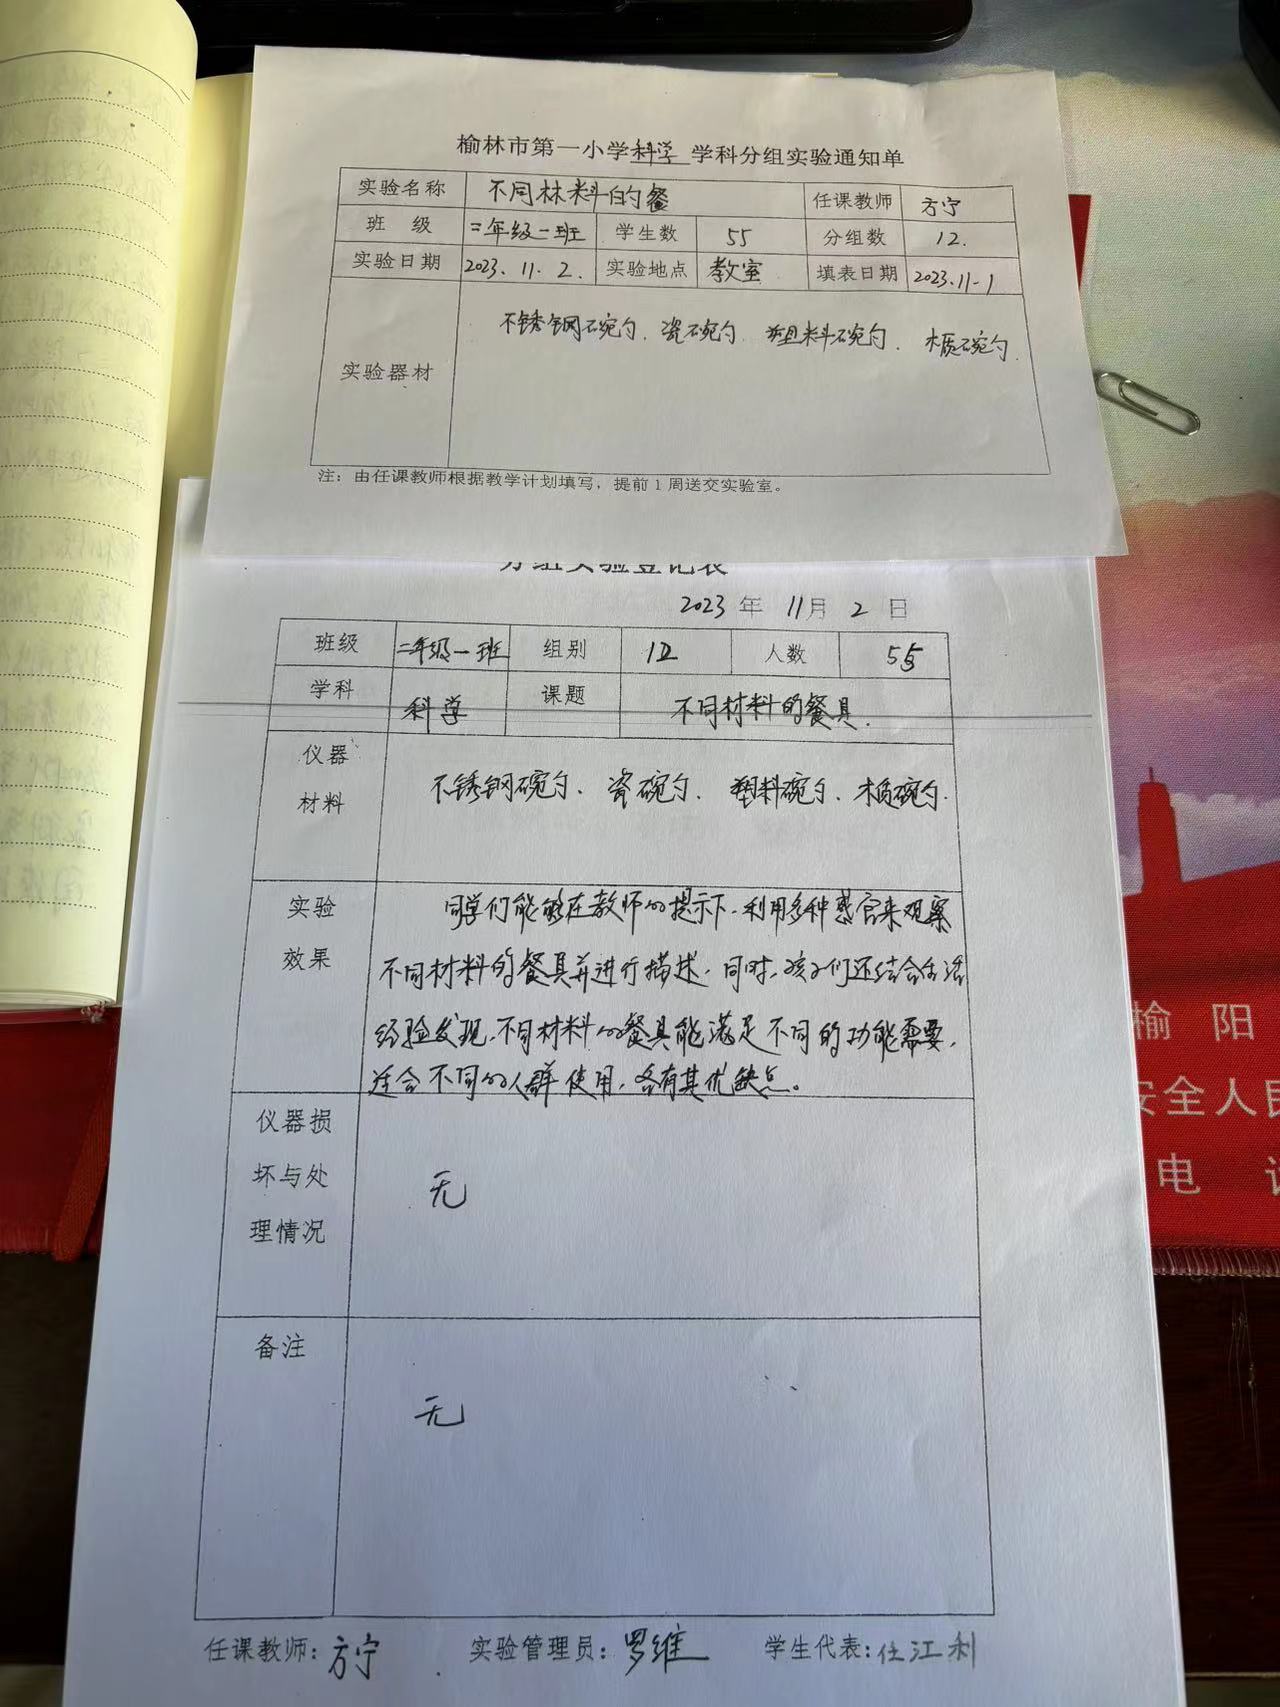 榆林市第一小学科学 学科分组实验通知单
实验名称 不同材料的餐 任课教师 方宁
班 级 二年级一班 学生数 55 分组数 12.
实验日期 2023.11.2. 实验地点 教室 填表日期 2023.11-1
实验器材 不锈钢碗勺、瓷碗勺、塑料碗勺、木质碗勺.
注：由任课教师根据教学计划填写，提前1周送交实验室。
分组实验登记表
2023 年 11月 2 日
班级 二年级一班 组别 12 人数 55
学科 科学 课题 不同材料的餐具.
仪器
材料
不锈钢碗勺、瓷碗勺、塑料碗勺、木质碗勺.
实验
效果
同学们能够在教师的提示下,利用多种感官来观察
不同材料的餐具并进行描述,同时,孩子们还结合生活
经验发现,不同材料的餐具能满足不同的功能需要,
适合不同的人群使用,各有其优缺点。
仪器损
坏与处
理情况
无
备注
无
任课教师：方宁 实验管理员：罗维 学生代表：任江利
榆 阳
安全人民
电